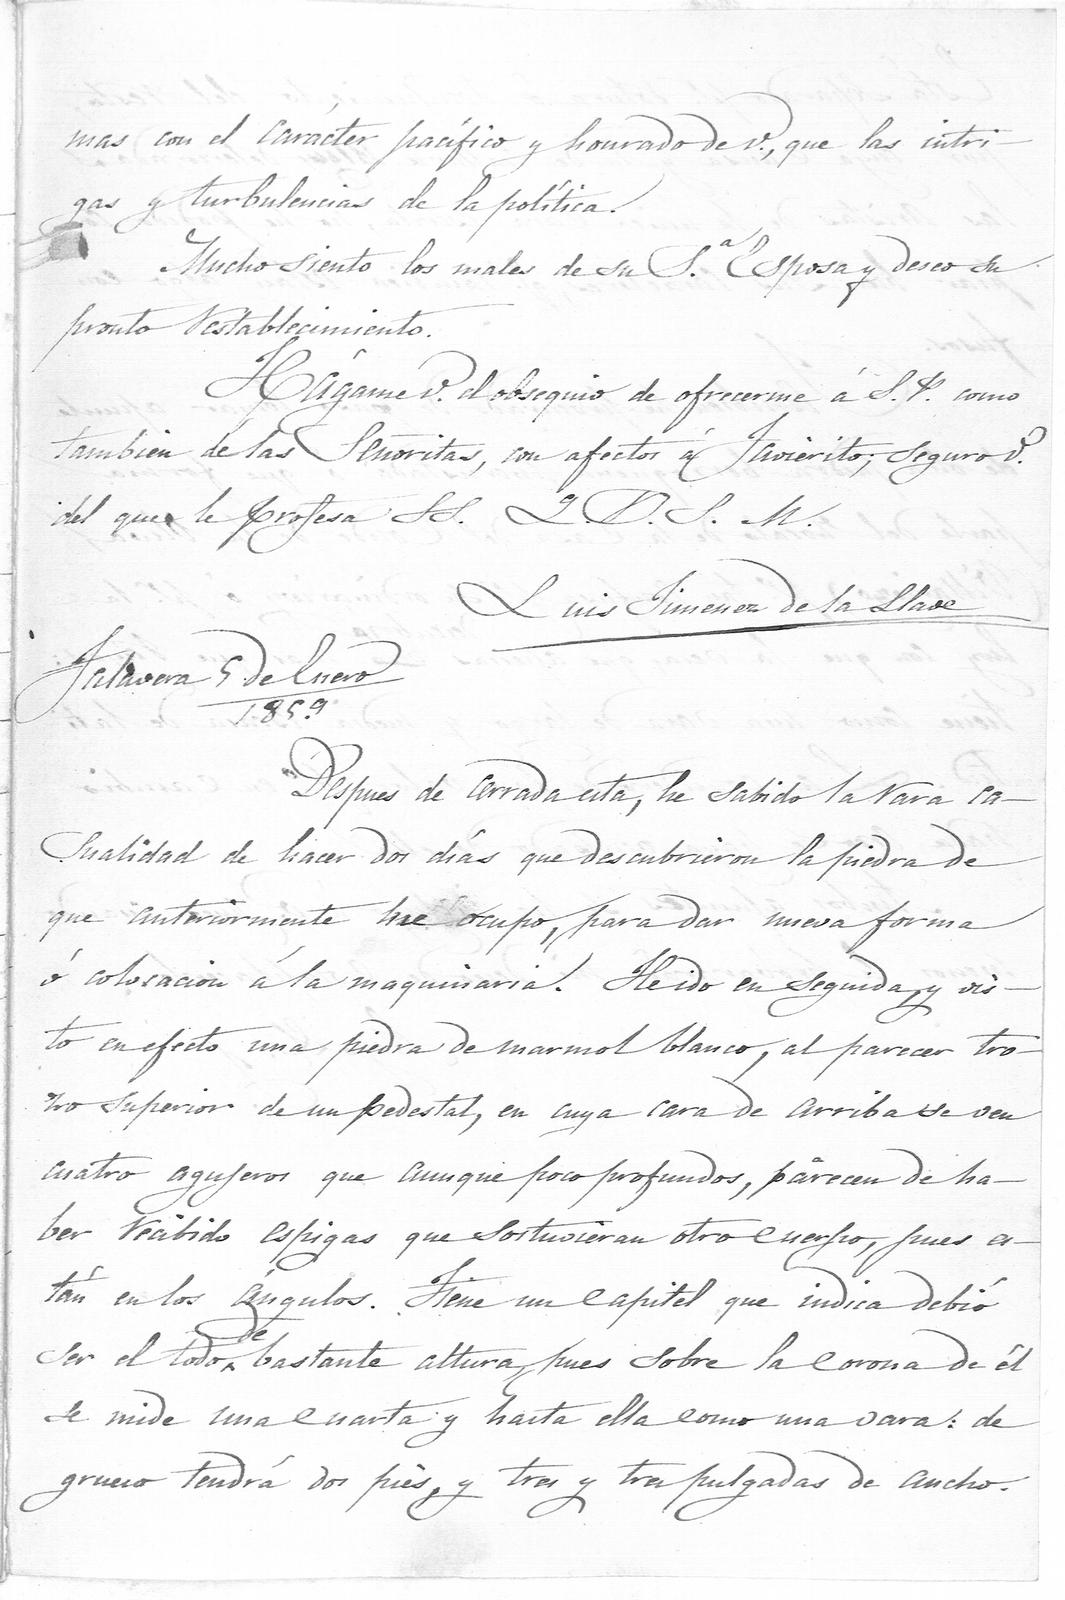 mas con el carácter pacífico y honrado de V., que las intri-
gas y turbulencias de la política.
Mucho siento los males de su S.ª Esposa y deseo su
pronto restablecimiento.
Hágame V. el obsequio de ofrecerme á S. P. como
tambien de las Señoritas, con afectos á Javierito, seguro V.
del que le profesa SS. Q. B. S. M.
Luis Jimenez de la Llave
Talavera 5 de Enero
1859
Despues de cerrada esta, he sabido la rara ca-
sualidad de hacer dos días que descubrieron la piedra de
que anteriormente me ocupo, para dar nueva forma
ó colocacion á la maquinaria. He ido en seguida, y vis-
to en efecto una piedra de marmol blanco, al parecer tro-
zo superior de un pedestal, en cuya cara de arriba se ven
cuatro agujeros que aunque poco profundos, parecen de ha-
ber recibido espigas que sostuvieran otro cuerpo, pues es-
tán en los ángulos. Tiene un capitel que indica debió
ser el todo de bastante altura, pues sobre la corona de él
se mide una cuarta y hasta ella como una vara: de
grueso tendrá dos piés, y tres y tres pulgadas de ancho.